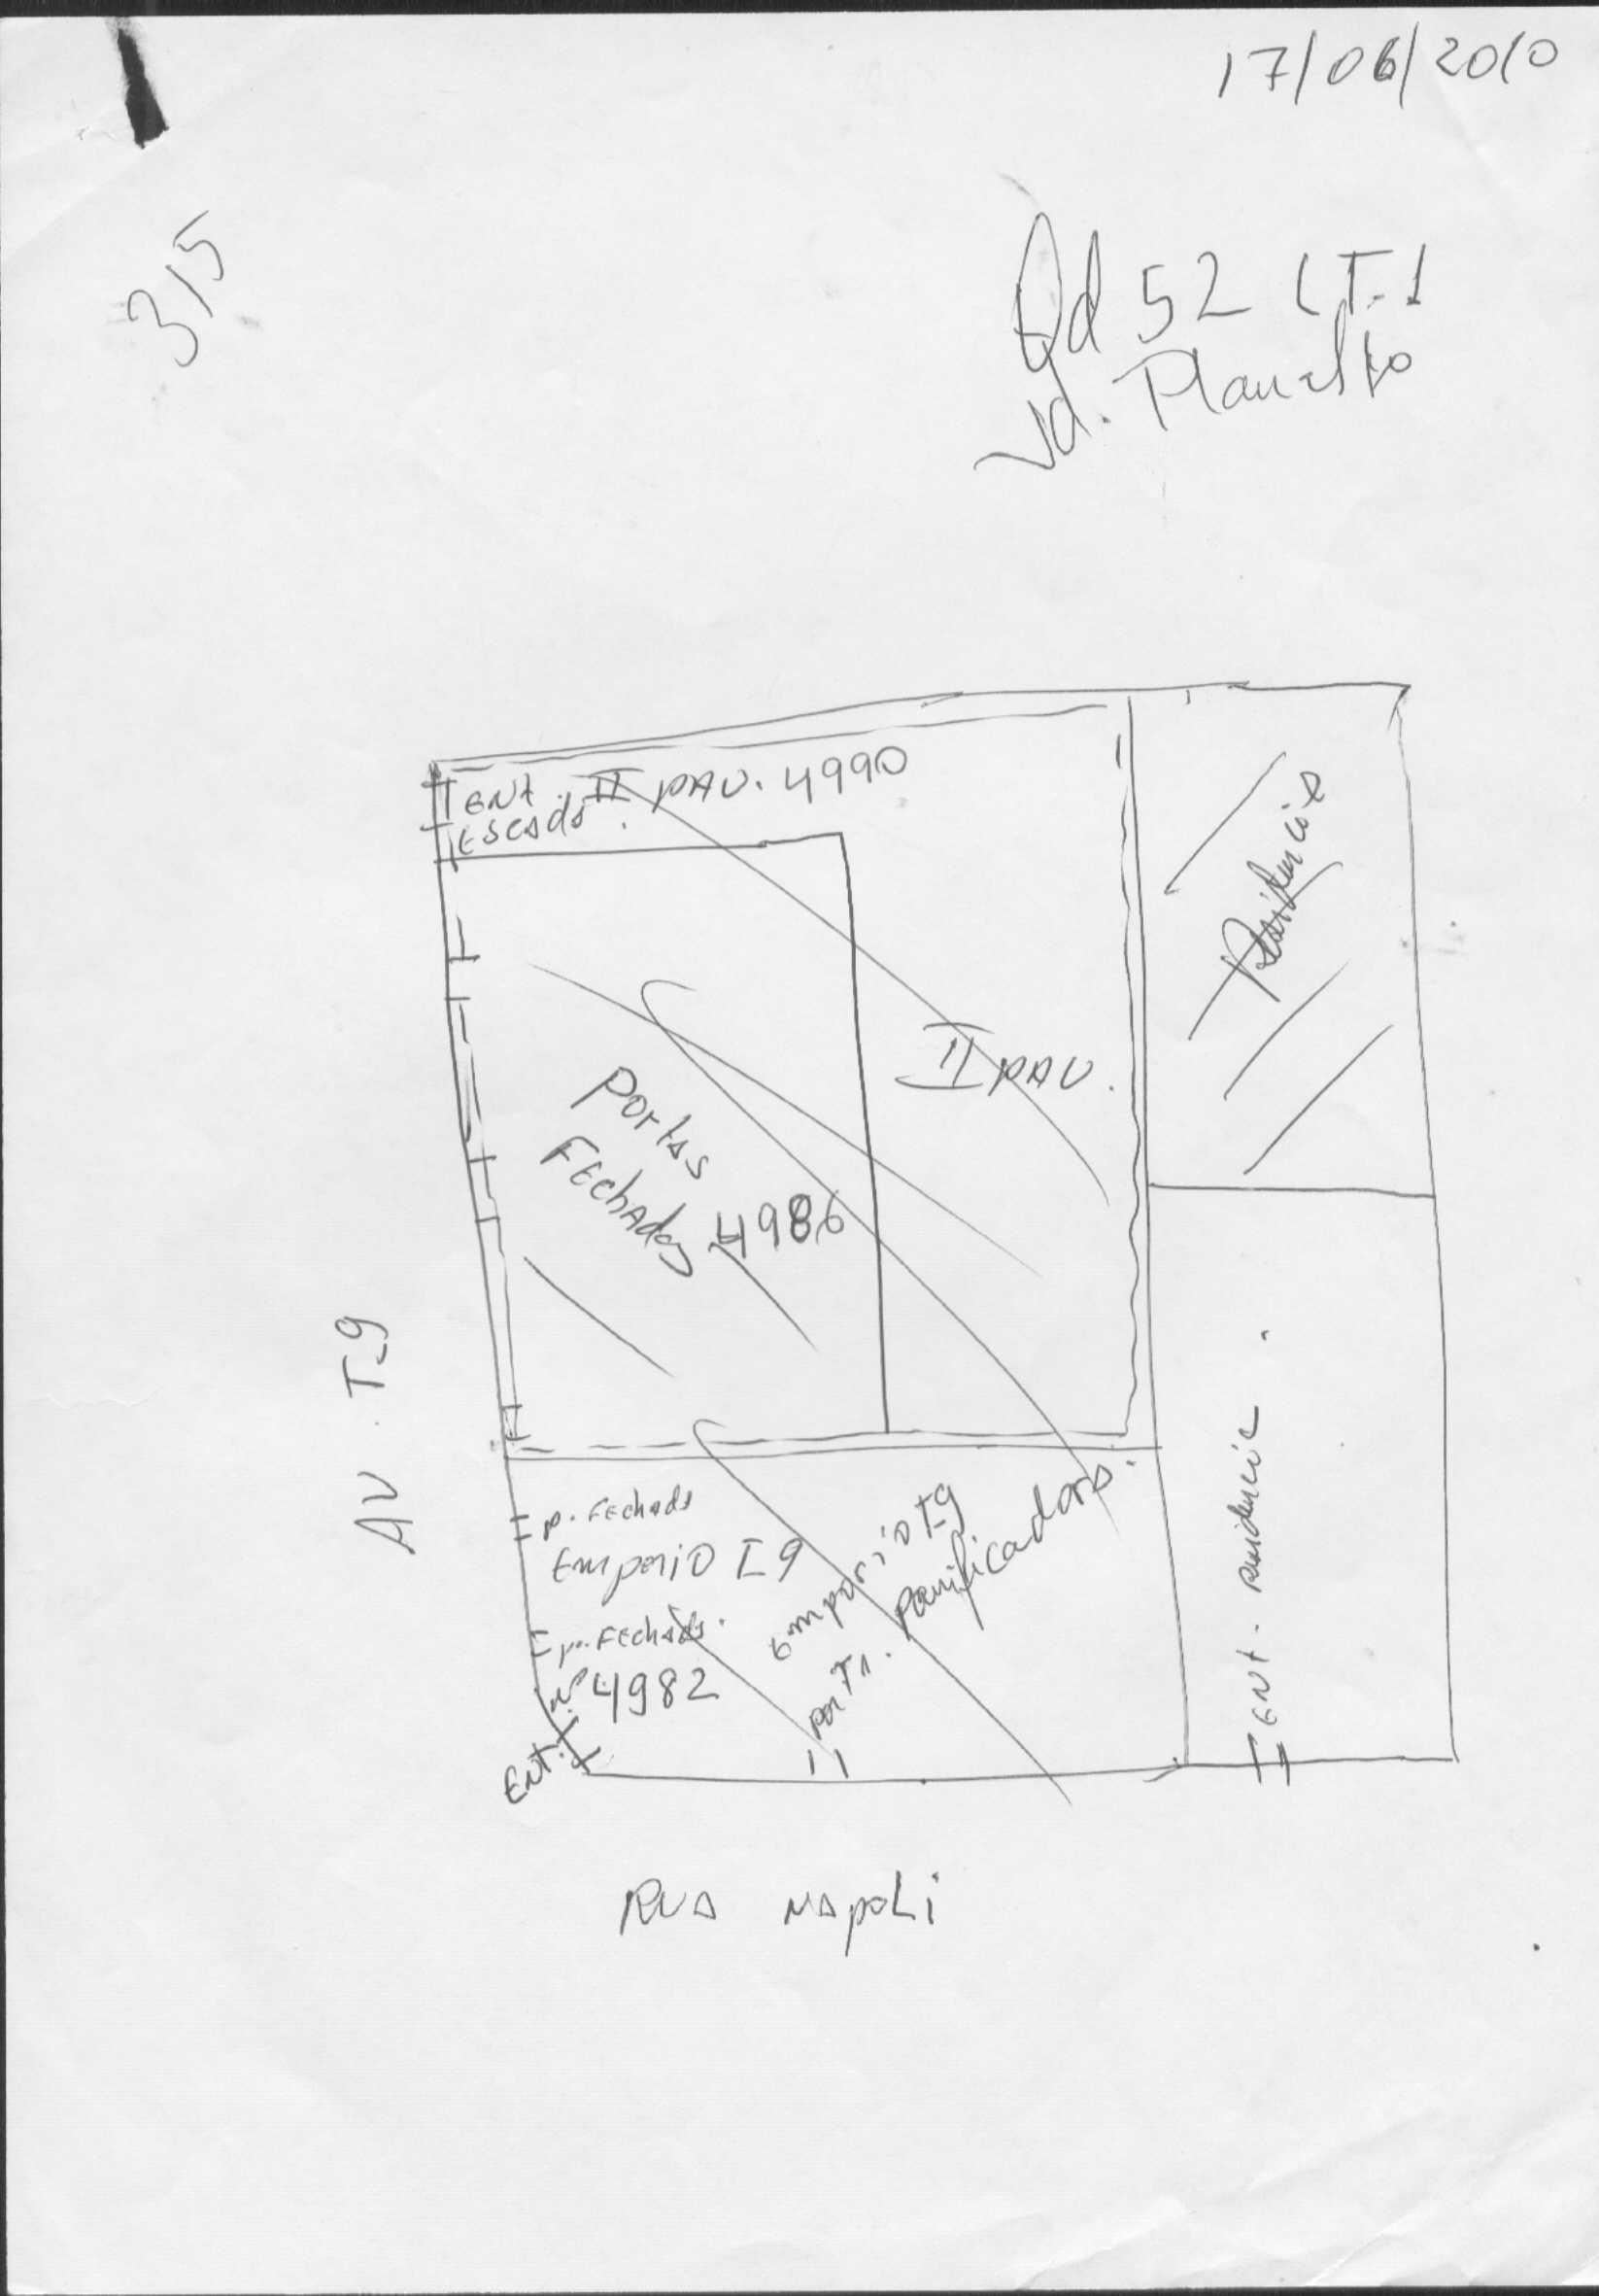 17/06/2010
315
Qd 52 LT.1
Jd. Planalto
ENT. II PAV. 4990
Escada.
Residencia
II PAV.
Portas
Fechadas 4986
AV. T_9
p. Fechada
Emporio T_9
p. Fechada.
nº 4982
Ent.
Emporio T_9
Port. Panificadora.
ENT. residencia.
RUA NAPOLI